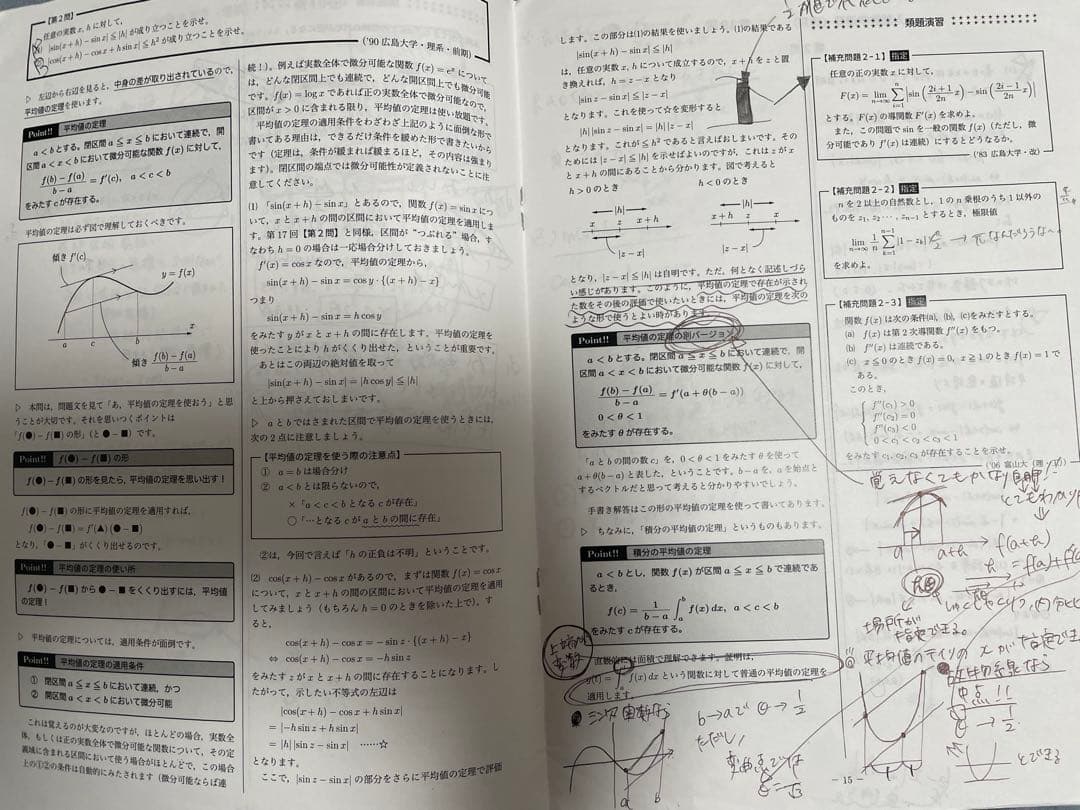 【第２問】
任意の実数 x, h に対して,
(1) |sin(x+h)−sin x| ≦ |h| が成り立つことを示せ。
(2) |cos(x+h)−cos x+h sin x| ≦ h² が成り立つことを示せ。
('90 広島大学・理系・前期)
▷ 左辺から右辺を見ると、中身の差が取り出されているので,
平均値の定理を使います。
Point!! 平均値の定理
a<b とする。閉区間 a≦x≦b において連続で，開
区間 a<x<b において微分可能な関数 f(x) に対して,
f(b)−f(a)/b−a = f'(c), a<c<b
をみたす c が存在する。
平均値の定理は必ず図で理解しておくべきです。
傾き f'(c)
y=f(x)
a c b x
傾き f(b)−f(a)/b−a
▷ 本問は，問題文を見て「あ，平均値の定理を使おう」と思
うことが大切です。それを思いつくポイントは
「f(●)−f(■) の形」(と ●−■) です。
Point!! f(●)−f(■) の形
f(●)−f(■) の形を見たら，平均値の定理を思い出す！
f(●)−f(■) の形に平均値の定理を適用すれば,
f(●)−f(■)=f'(▲)(●−■)
となり，「●−■」がくくり出せるのです。
Point!! 平均値の定理の使い所
f(●)−f(■) から ●−■ をくくり出すには，平均値
の定理！
▷ 平均値の定理については，適用条件が面倒です。
Point!! 平均値の定理の適用条件
① 閉区間 a≦x≦b において連続，かつ
② 開区間 a<x<b において微分可能
これは覚えるのが大変なのですが，ほとんどの場合，実数全
体，もしくは正の実数全体で微分可能な関数について，その定
義域に含まれる区間において使う場合がほとんどで，この場合
上の①②の条件は自動的にみたされます（微分可能ならば連
続！）。例えば実数全体で微分可能な関数 f(x)=eˣ について
は，どんな閉区間上でも連続で，どんな開区間上でも微分可能
です。f(x)=log x であれば正の実数全体で微分可能なので,
区間が x>0 に含まれる限り，平均値の定理は使い放題です。
平均値の定理の適用条件をわざわざ上記のように面倒な形で
書いてある理由は，できるだけ条件を緩めた形で書きたいから
です（定理は，条件が緩まれば緩まるほど，その内容は強まり
ます）。閉区間の端点では微分可能性が定義されないことに注
意してください。
(1) 「sin(x+h)−sin x」とあるので，関数 f(x)=sin x につ
いて，x と x+h の間の区間において平均値の定理を適用しま
す。第 17 回【第２問】と同様，区間が“つぶれる”場合，す
なわち h=0 の場合は一応場合分けしておきましょう。
f'(x)=cos x なので，平均値の定理から,
sin(x+h)−sin x=cos y·{(x+h)−x}
つまり
sin(x+h)−sin x=h cos y
をみたす y が x と x+h の間に存在します。平均値の定理を
使ったことにより h がくくり出せた，ということが重要です。
あとはこの両辺の絶対値を取って
|sin(x+h)−sin x|=|h cos y|≦|h|
と上から押さえておしまいです。
▷ a と b ではさまれた区間で平均値の定理を使うときには,
次の２点に注意しましょう。
【平均値の定理を使う際の注意点】
① a=b は場合分け
② a<b とは限らないので,
×「a<c<b となる c が存在」
○「…となる c が a と b の間に存在」
②は，今回で言えば「h の正負は不明」ということです。
(2) cos(x+h)−cos x があるので，まずは関数 f(x)=cos x
について，x と x+h の間の区間において平均値の定理を適用
してみましょう（もちろん h=0 のときを除いた上で）。す
ると,
cos(x+h)−cos x=−sin z·{(x+h)−x}
⇔ cos(x+h)−cos x=−h sin z
をみたす z が x と x+h の間に存在することになります。し
たがって，示したい不等式の左辺は
|cos(x+h)−cos x+h sin x|
=|−h sin z+h sin x|
=|h||sin z−sin x| ……☆
となります。
ここで，|sin z−sin x| の部分をさらに平均値の定理で評価
します。この部分は(1)の結果を使いましょう。(1)の結果である
|sin(x+h)−sin x|≦|h|
は，任意の実数 x, h について成立するので，x+h を z と置
き換えれば，h=z−x となり
|sin z−sin x|≦|z−x|
となります。これを使って☆を変形すると
|h||sin z−sin x|=|h||z−x|
となります。これが ≦h² であると言えばおしまいです。その
ためには |z−x|≦|h| を示せばよいのですが，これは z が x
と x+h の間にあることから分かります。図で考えると
h>0 のとき h<0 のとき
|h| |h|
x z x+h x+h z x
|z−x| |z−x|
となり，|z−x|≦|h| は自明です。ただ，何となく記述しづら
い感じがあります。このように，平均値の定理で存在が示され
た数をその後の評価で使いたいときには，平均値の定理を次の
ような形で使うとよい時があります。
Point!! 平均値の定理の別バージョン
a<b とする。閉区間 a≦x≦b において連続で，開
区間 a<x<b において微分可能な関数 f(x) に対して,
f(b)−f(a)/b−a = f'(a+θ(b−a))
0<θ<1
をみたす θ が存在する。
「a と b の間の数 c」を，0<θ<1 をみたす θ を使って
a+θ(b−a) と表した，ということです。b−a を，a を始点と
するベクトルだと思って考えると分かりやすいでしょう。
手書き解答はこの形の平均値の定理を使って書いてあります。
▷ ちなみに，「積分の平均値の定理」というものもあります。
Point!! 積分の平均値の定理
a<b とし，関数 f(x) が区間 a≦x≦b で連続であ
るとき,
f(c)= 1/b−a ∫ₐᵇ f(x) dx, a<c<b
をみたす c が存在する。
直観的には面積で理解できます。証明は,
f(x) dx という関数に対して普通の平均値の定理を
適用します。
b→aで θ→1/2
ただし,
a b
類題演習
【補充問題２-１】指定
任意の正の実数 x に対して,
F(x)= lim n→∞ Σ |sin(2i+1/2n x)−sin(2i−1/2n x)|
とする。F(x) の導関数 F'(x) を求めよ。
また，この問題で sin を一般の関数 f(x)（ただし，微
分可能であり f'(x) は連続）にするとどうなるか。
('83 広島大学・改)
【補充問題２-２】指定
n を 2 以上の自然数とし，1 の n 乗根のうち 1 以外の
ものを z₁, z₂, ⋯, zₙ₋₁ とするとき，極限値
lim n→∞ 1/n Σ k=1 n−1 |1−zₖ|
を求めよ。
【補充問題２-３】指定
関数 f(x) は次の条件(a), (b), (c)をみたすとする。
(a) f(x) は第 2 次導関数 f''(x) をもつ。
(b) f''(x) は連続である。
(c) x≦0 のとき f(x)=0, x≧1 のとき f(x)=1 で
ある。
このとき,
f''(c₁)>0
f''(c₂)=0
f''(c₃)<0
0<c₁<c₂<c₃<1
をみたす c₁, c₂, c₃ が存在することを示せ。
('06 富山大
覚えなくてもかなり自明!
a a+h
f(a+h)
場所が
指定できる。
中点!!
θ→1/2
とできる
− 15 −